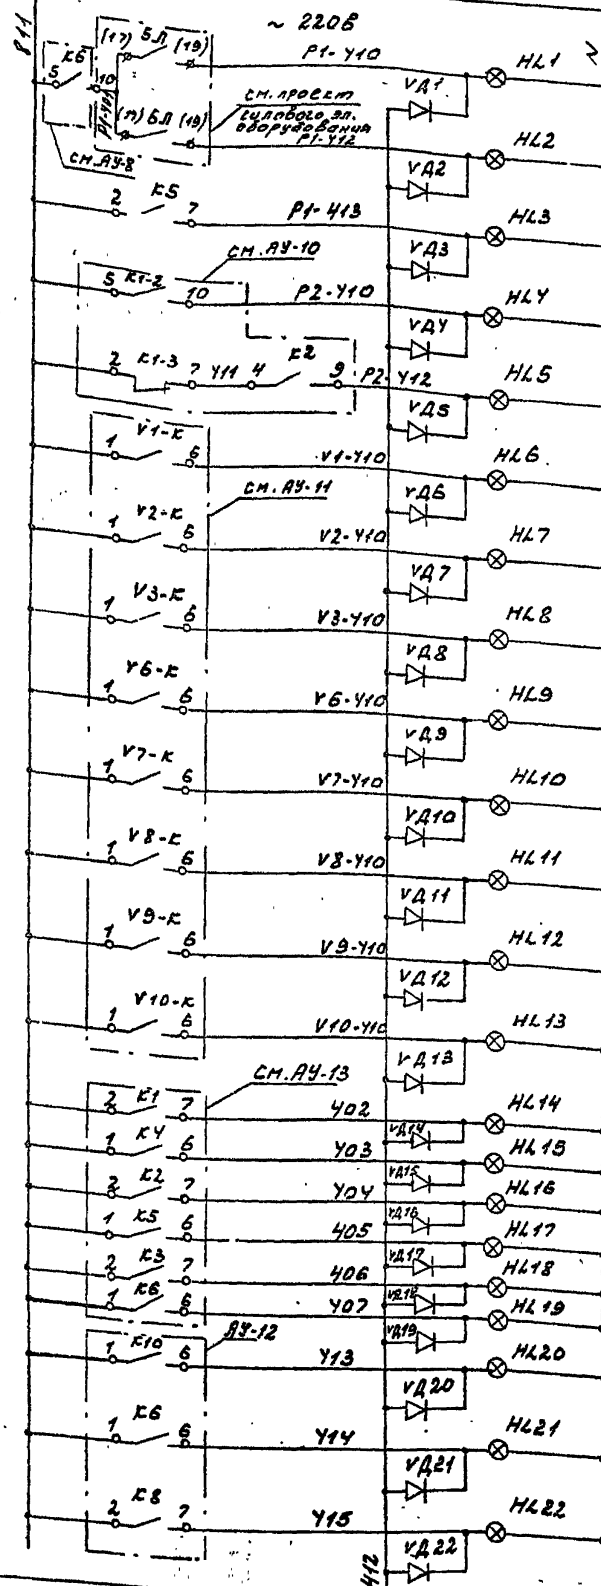 ~ 220В
811
К6
5
10
Р1-У01
(17) БЛ (19)
Р1-У10
HL1
VД1
см. проект
силового эл.
оборудования
(11) БЛ (19)
Р1-У12
HL2
см. АУ-8
VД2
2 К5 7
Р1-413
HL3
VД3
см. АУ-10
5 К1-2 10
Р2-У10
HL4
VД4
2 К1-3 7 У11 4 К2 9 Р2-У12
HL5
VД5
1 V1-К 6
V1-У10
HL6
см. АУ-11
VД6
1 V2-К 6
V2-У10
HL7
VД7
1 V3-К 6
V3-У10
HL8
VД8
1 V6-К 6
V6-У10
HL9
VД9
1 V7-К 6
V7-У10
HL10
VД10
1 V8-К 6
V8-У10
HL11
VД11
1 V9-К 6
V9-У10
HL12
VД12
1 V10-К 6
V10-У10
HL13
VД13
см. АУ-13
2 К1 7
402
HL14
VД14
1 К4 6
У03
HL15
VД15
2 К2 7
У04
HL16
VД16
1 К5 6
405
HL17
VД17
2 К3 7
406
HL18
VД18
1 К6 6
У07
HL19
VД19
АУ-12
1 К10 6
У13
HL20
VД20
1 К6 6
У14
HL21
VД21
2 К8 7
У15
HL22
VД22
412